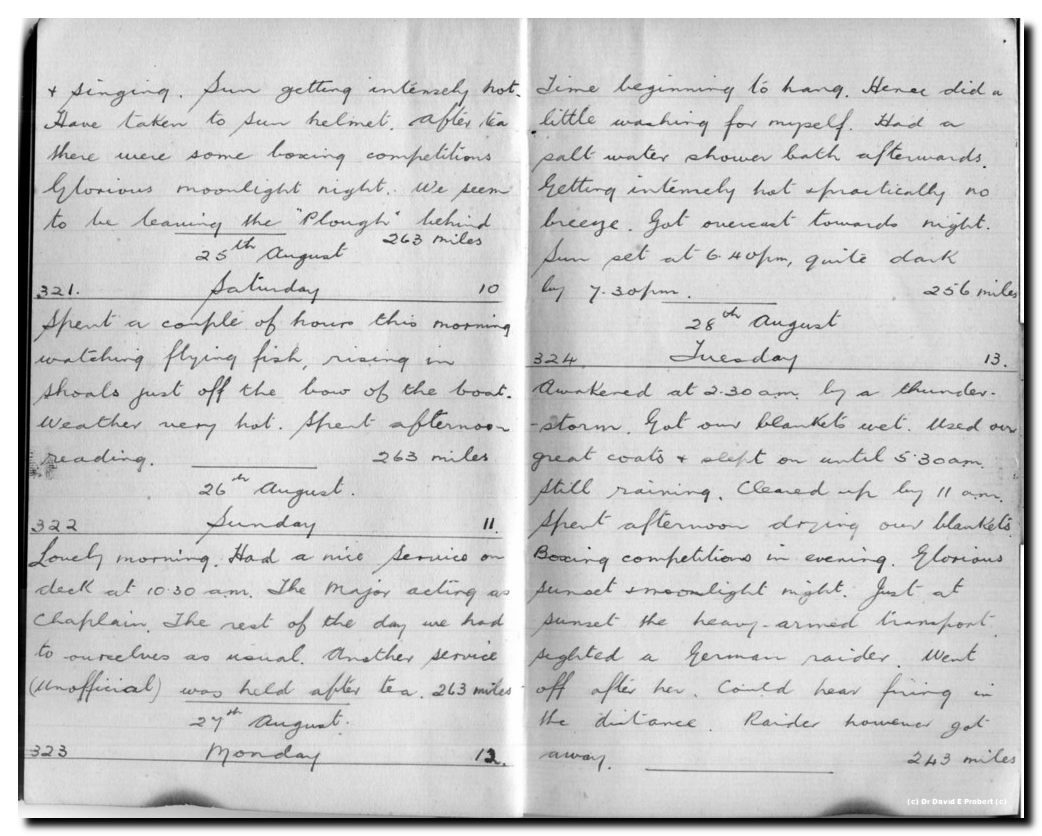 & singing. Sun getting intensely hot.
Have taken to sun helmet. After tea
there were some boxing competitions
Glorious moonlight night. We seem
to be leaving the "Plough" behind
263 miles
25th August
321. Saturday 10
Spent a couple of hours this morning
watching flying fish, rising in
shoals just off the bow of the boat.
Weather very hot. Spent afternoon
reading. 263 miles
26th August.
322 Sunday 11.
Lovely morning. Had a nice service on
deck at 10.30 am. The Major acting as
Chaplain. The rest of the day we had
to ourselves as usual. Another service
(Unofficial) was held after tea. 263 miles
27th August.
323 Monday 12.
Time beginning to hang. Hence did a
little washing for myself. Had a
salt water shower bath afterwards.
Getting intensely hot & practically no
breeze. Got overcast towards night.
Sun set at 6.40pm, quite dark
by 7.30pm. 256 miles
28th August
324 Tuesday 13.
Awakened at 2.30 am. by a thunder-
-storm. Got our blankets wet. Used our
great coats & slept on until 5.30am.
Still raining. Cleared up by 11 am.
Spent afternoon drying our blankets.
Boxing competitions in evening. Glorious
sunset & moonlight night. Just at
sunset the heavy-armed transport.
sighted a German raider. Went
off after her. Could hear firing in
the distance. Raider however got
away. 243 miles
(c) Dr David E Probert (c)